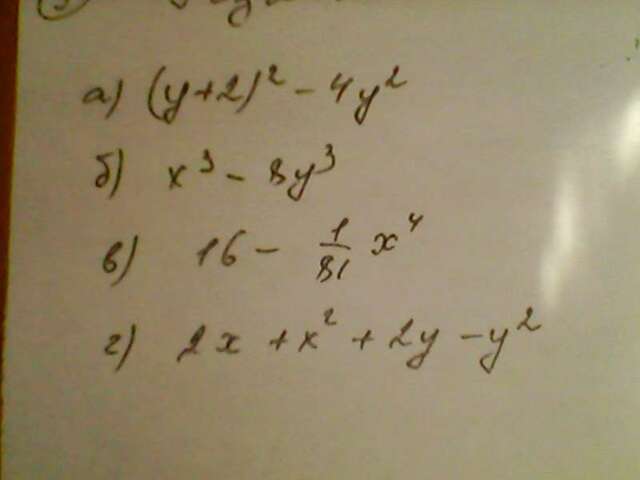 а) (y+2)² – 4y²
б) x³ – 8y³
в) 16 – 1/81 x⁴
г) 2x + x² + 2y – y²